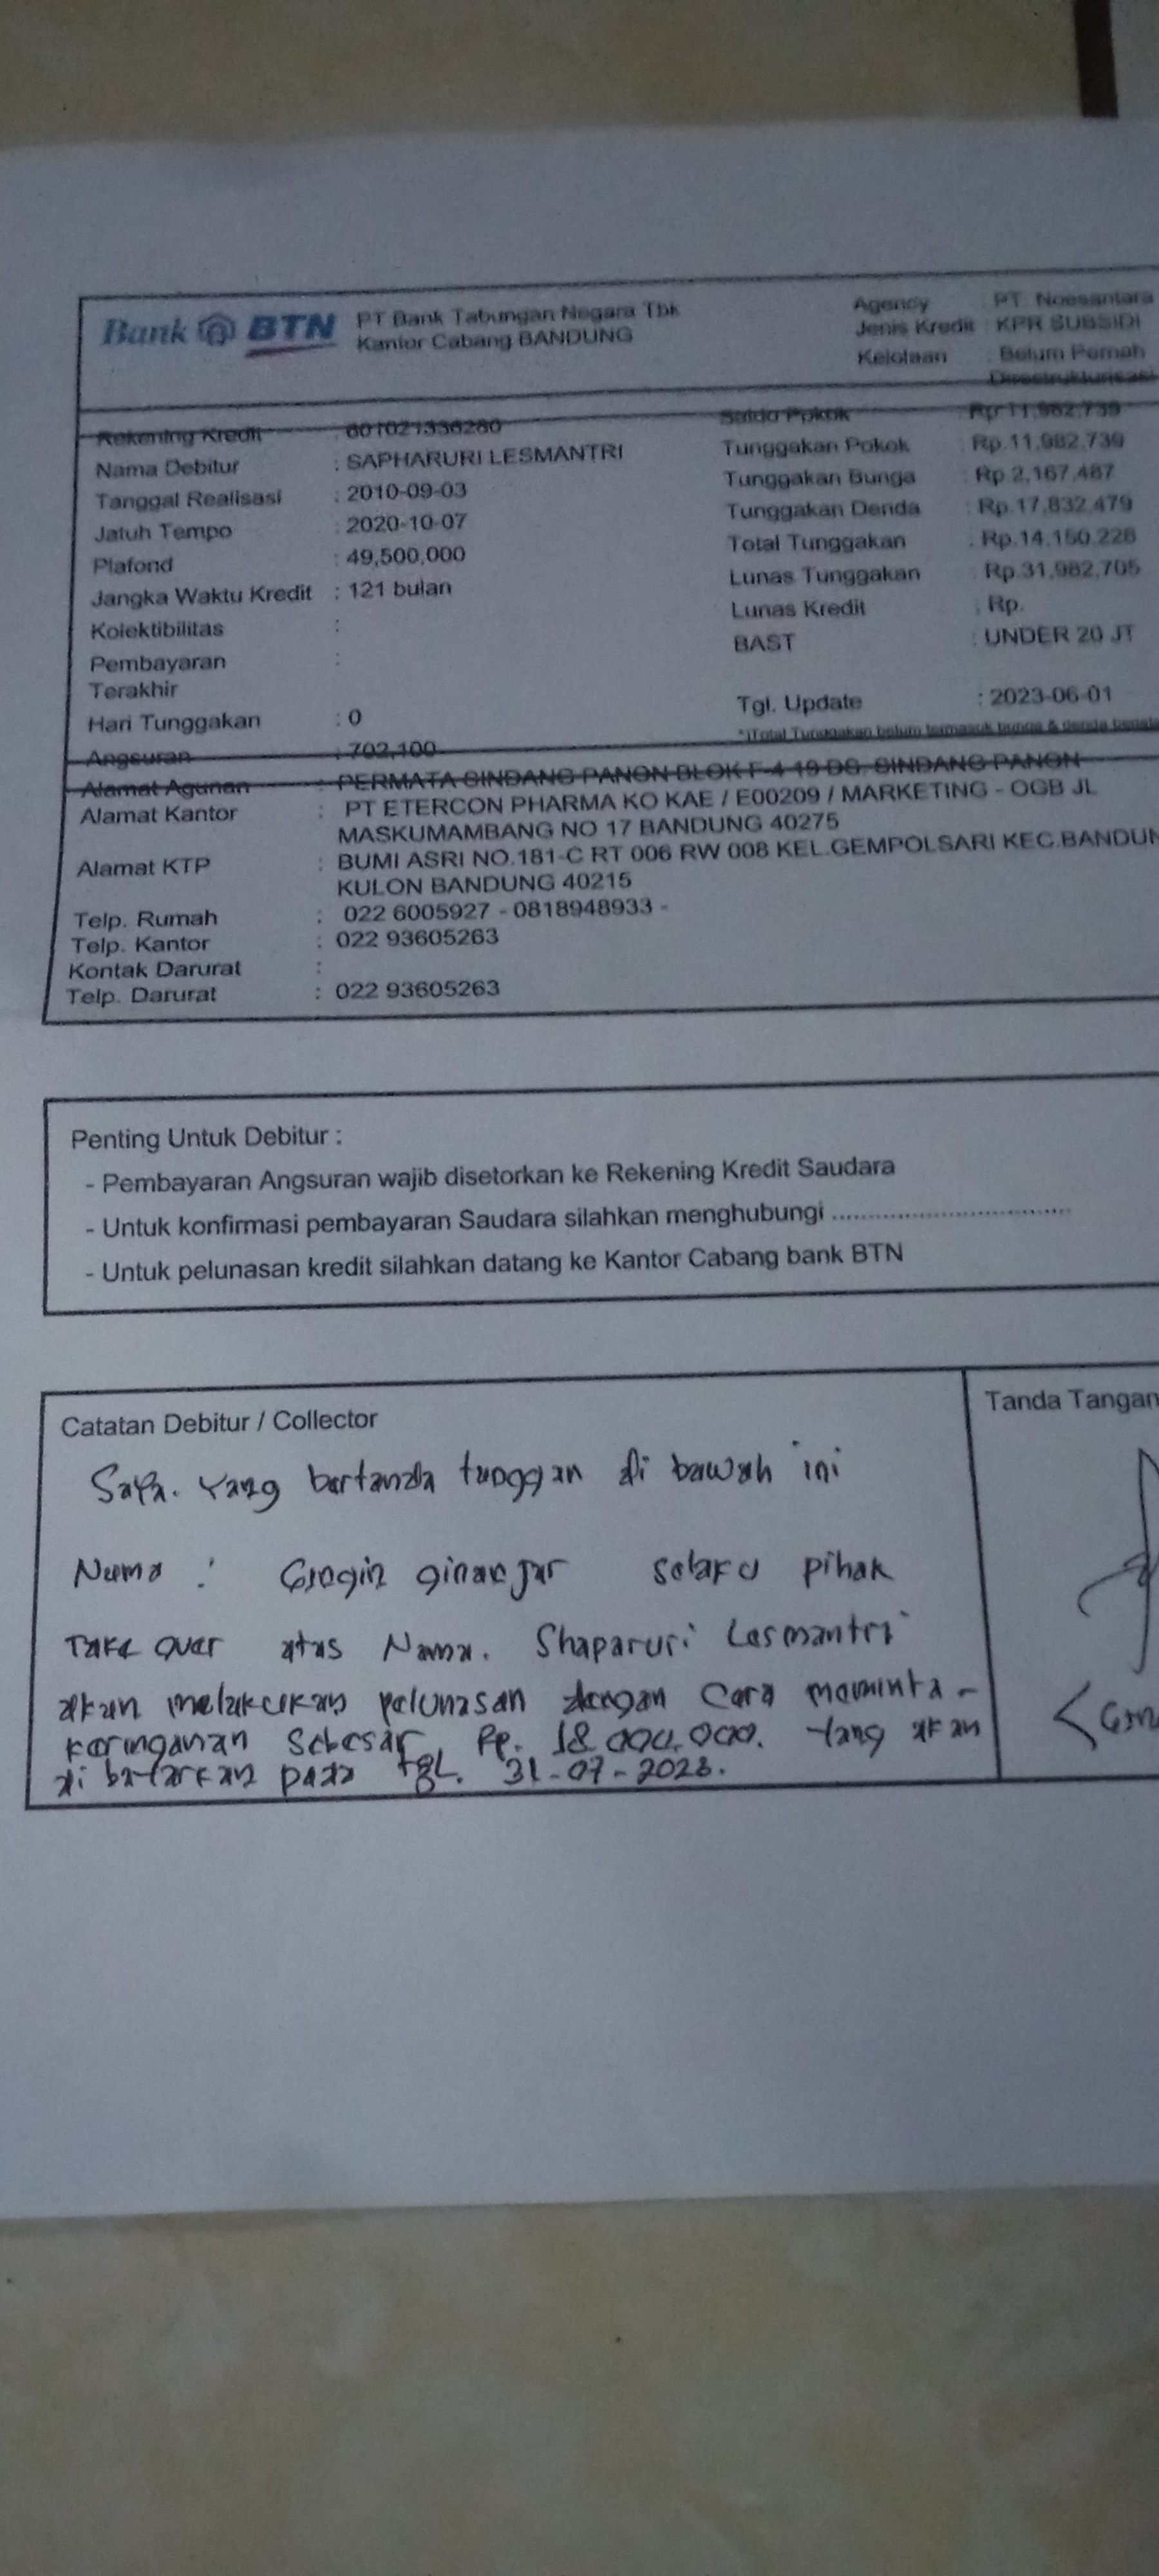 Bank BTN PT Bank Tabungan Negara Tbk
Kantor Cabang BANDUNG
Agency : PT. Noesantara
Jenis Kredit : KPR SUBSIDI
Kelolaan : Belum Pernah
Direstrukturisasi
Rekening Kredit :
Nama Debitur : SAPHARURI LESMANTRI
Tanggal Realisasi : 2010-09-03
Jatuh Tempo : 2020-10-07
Plafond : 49,500,000
Jangka Waktu Kredit : 121 bulan
Kolektibilitas :
Pembayaran :
Terakhir
Hari Tunggakan : 0
Angsuran : 702,100
Saldo Pokok : Rp 11,982,739
Tunggakan Pokok : Rp.11,982,739
Tunggakan Bunga : Rp 2,167,487
Tunggakan Denda : Rp.17,832,479
Total Tunggakan : Rp.14,150,226
Lunas Tunggakan : Rp.31,982,705
Lunas Kredit : Rp.
BAST : UNDER 20 JT
Tgl. Update : 2023-06-01
*)Total Tunggakan belum termasuk bunga & denda
Alamat Agunan : PERMATA SINDANG PANON BLOK F 4 19 DS. SINDANG PANON
Alamat Kantor : PT ETERCON PHARMA KO KAE / E00209 / MARKETING - OGB JL
MASKUMAMBANG NO 17 BANDUNG 40275
Alamat KTP : BUMI ASRI NO.181-C RT 006 RW 008 KEL.GEMPOLSARI KEC.BANDUN
KULON BANDUNG 40215
Telp. Rumah : 022 6005927 - 0818948933 -
Telp. Kantor : 022 93605263
Kontak Darurat :
Telp. Darurat : 022 93605263
Penting Untuk Debitur :
- Pembayaran Angsuran wajib disetorkan ke Rekening Kredit Saudara
- Untuk konfirmasi pembayaran Saudara silahkan menghubungi ................................
- Untuk pelunasan kredit silahkan datang ke Kantor Cabang bank BTN
Catatan Debitur / Collector
Tanda Tangan
Saya. Yang bertanda tanggan di bawah ini
Nama : ginanjar selaku pihak
Take over atas Nama. Shaparuri Lesmantri
akan melakukan pelunasan dengan Cara meminta -
keringanan Sebesar Rp. 18.000.000. yang akan
di bayarkan pada tgl. 31-07-2023.